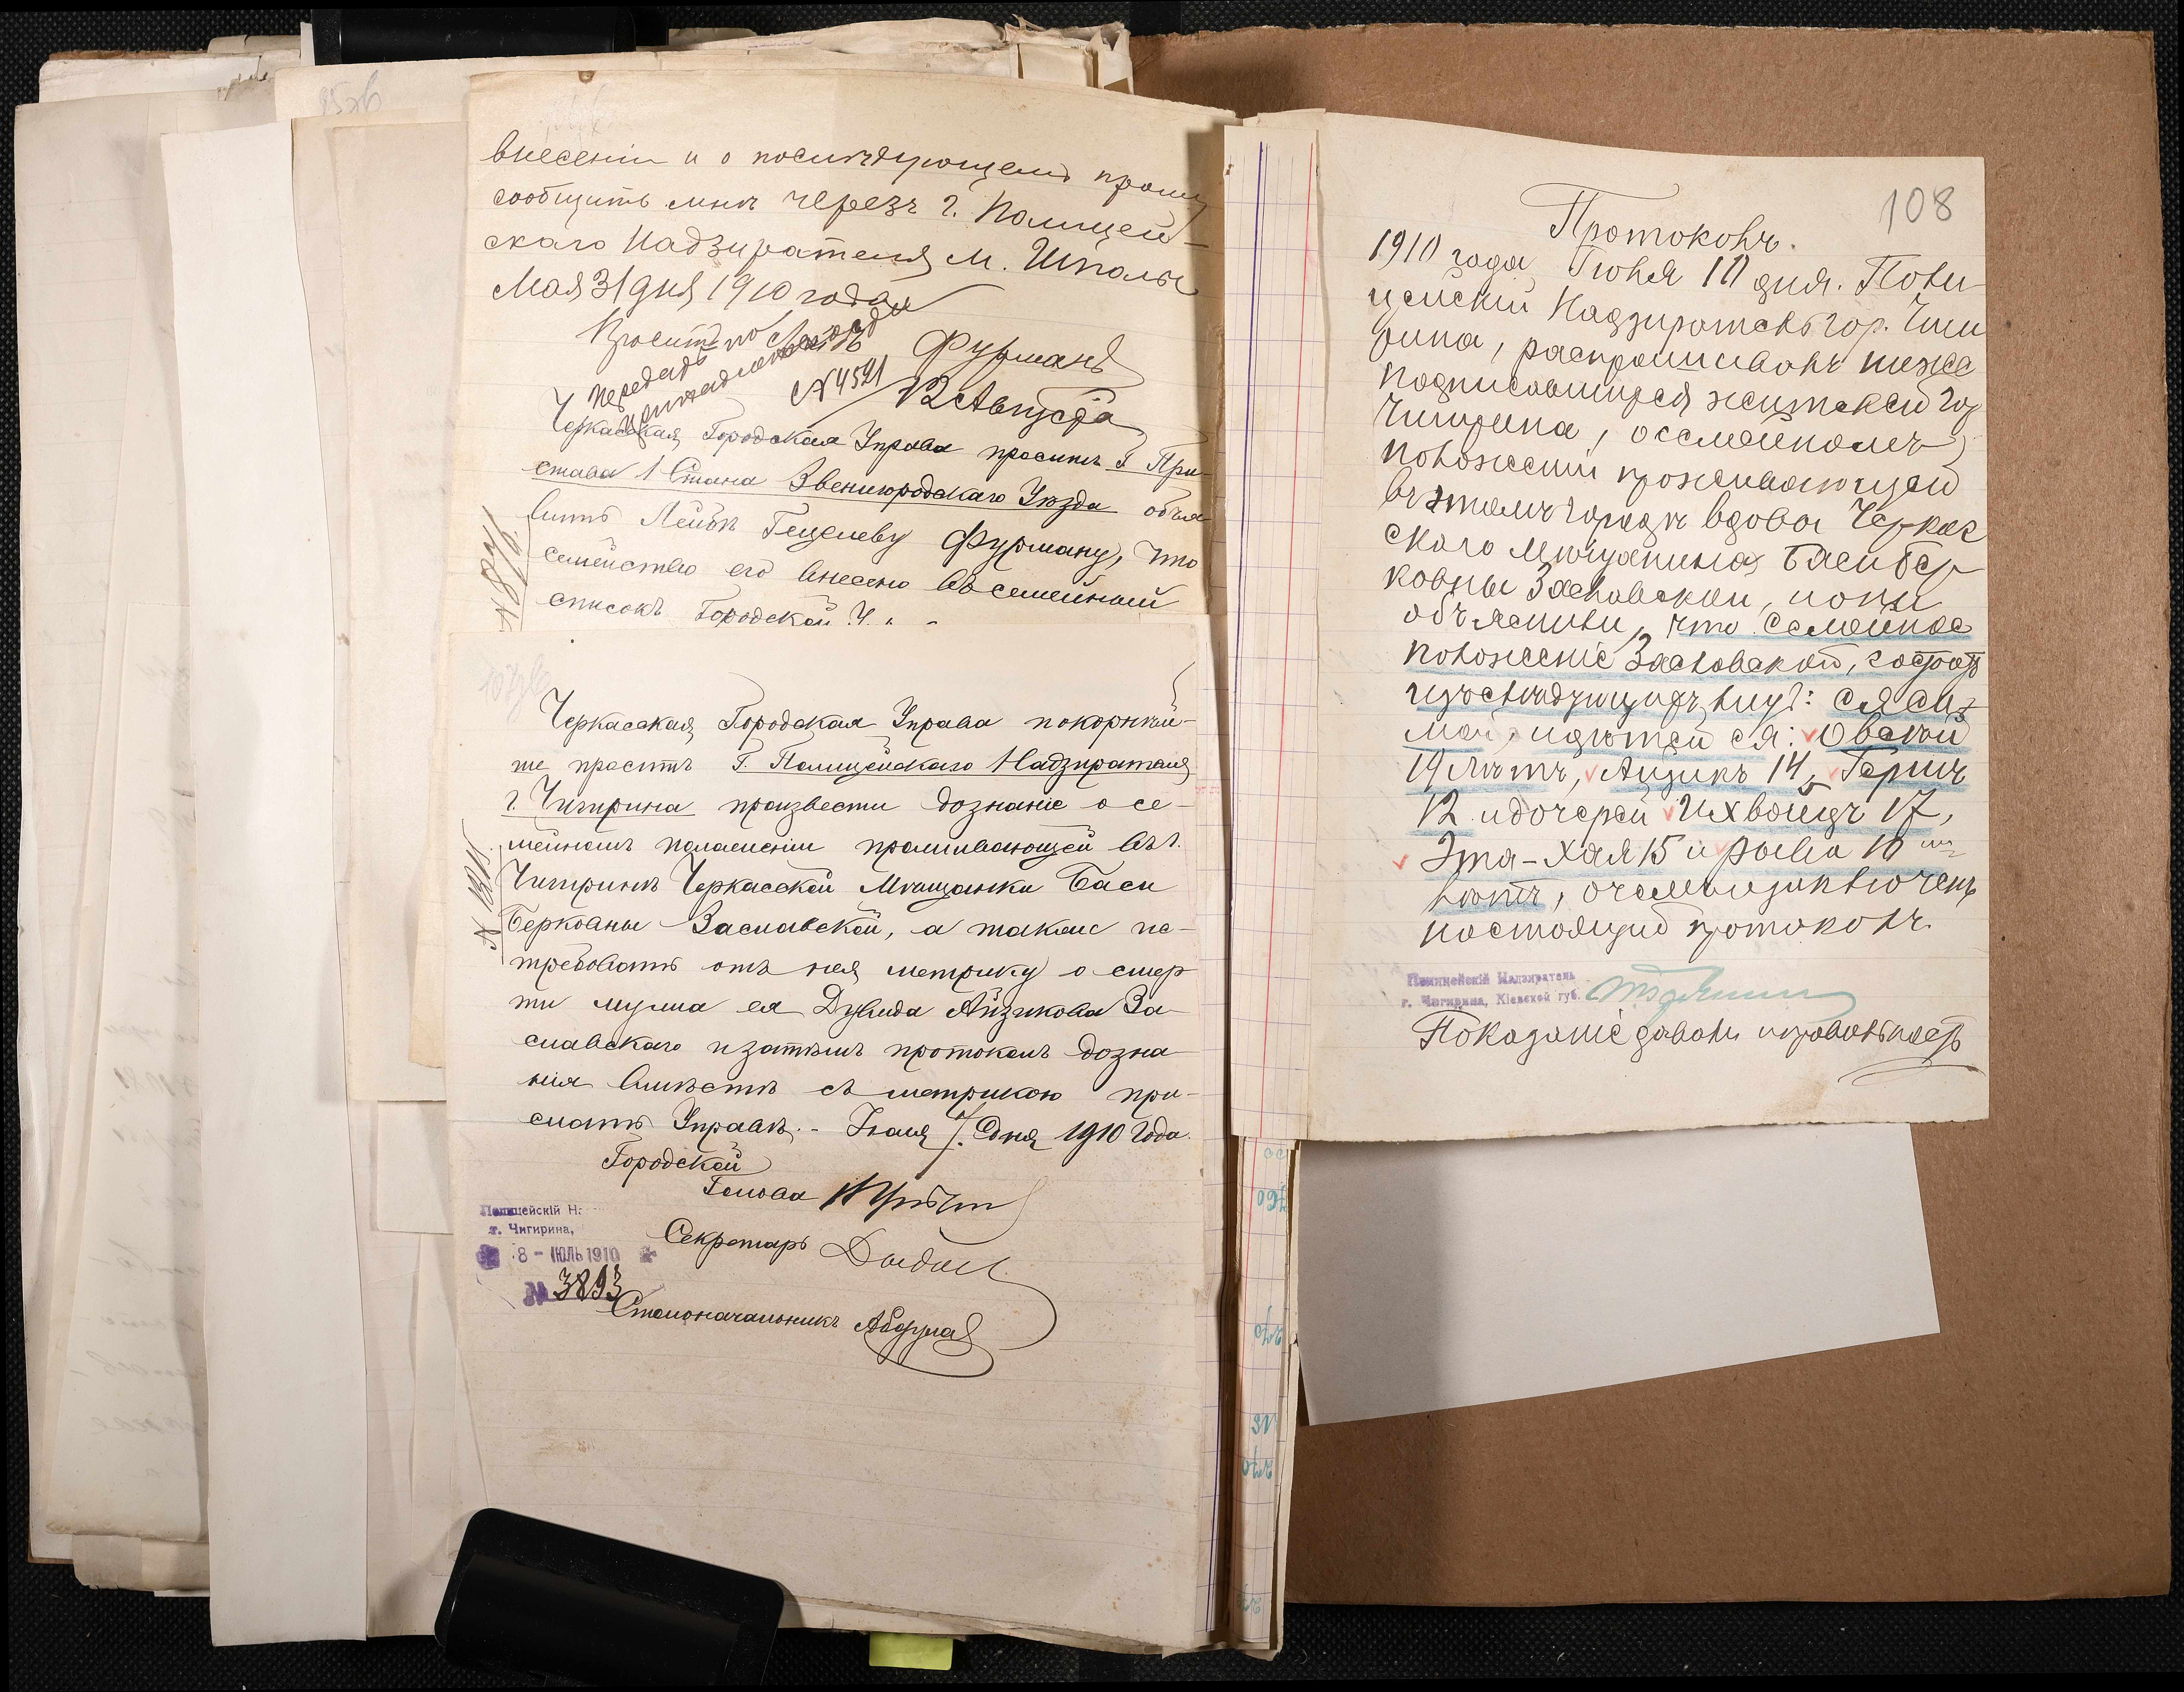 внесеніи и о послѣдующемъ прошу
сообщить мнѣ черезъ г. Полицей-
скаго Надзирателя м. Шполы
Мая 31 дня 1910 года
Фурманъ
№ 4521
12 Августа
Черкасская Городская Управа проситъ Г. При-
става 1 Стана Звенигородскаго Уѣзда объя-
вить Лейбѣ Гецелеву Фурману, что
семейство его внесено въ семейный
списокъ Городской У.
Черкасская Городская Управа покорнѣй-
ше проситъ Г. Полицейскаго Надзирателя
г. Чигирина произвести дознаніе о се-
мейномъ положеніи проживающей въ г.
Чигиринѣ Черкасской Мѣщанки Баси
Берковны Заславской, а также по-
требовать отъ нея метрику о смер-
ти мужа ея Дувида Айзикова За-
славскаго и затѣмъ протоколъ дозна-
нія вмѣстѣ съ метрикою при-
слать Управѣ. - Іюля 7 дня 1910 года.
Городской
Голова
Секретарь
Столоначальникъ
Полицейскій Н
г. Чигирина,
8 - ІЮЛЬ 1910
№ 3893
108
Протоколъ.
1910 года Іюля 10 дня. Поли-
цейскій Надзиратель гор. Чиги
рина, распрашивалъ ниже
подписавшихся жителей гор
Чигирина, о семейномъ
положеніи проживающей
въ этомъ городѣ вдовы Черкас
скаго мѣщанина Баси Бер
ковны Заславской, и они
объяснили, что семейное
положеніе Заславской, состоитъ
изъ слѣдующихъ лицъ: ея са
мой, и дѣтей ея: Овсей
19 лѣтъ, Айзикъ 14, Гершъ
12 и дочерей Ихвоидъ 17,
Эта-Хая 15 и Рывка 10
лѣтъ, о чемъ и заключенъ
настоящій протоколъ.
Полицейскій Надзиратель
г. Чигирина, Кіевской губ.
Показаніе давали